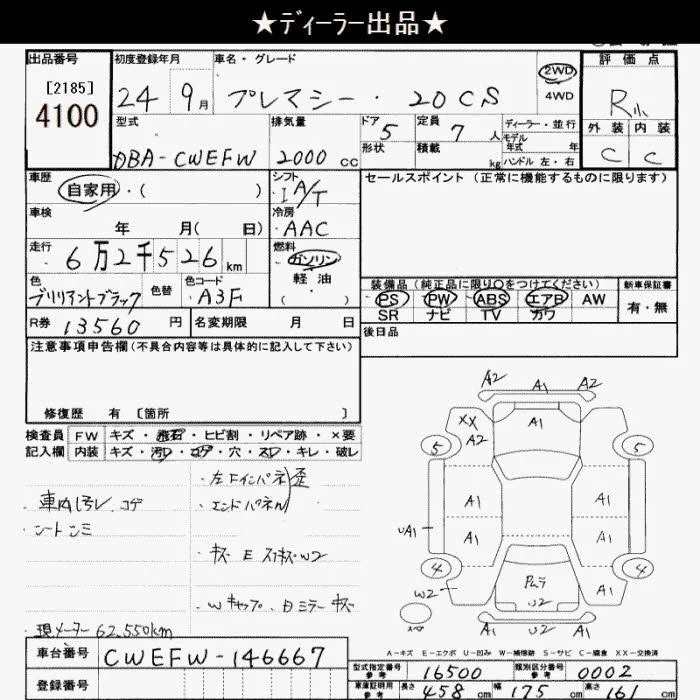 ★ディーラー出品★
出品番号
[2185]
4100
初度登録年月
24 9月
車名・グレード
プレマシー・20CS
2WD
4WD
評価点
R
外装 内装
C C
型式
DBA-CWEFW
排気量
2000 cc
ドア 5
形状
定員 7 人
積載 kg
ディーラー・並行
モデル
年式 年
ハンドル 左・右
車歴
自家用・( )
シフト
IA/T
車検
年 月( 日)
冷房
AAC
走行
6万2千526 km
燃料
ガソリン
軽油
( )
色
ブリリアントブラック
色替
色コード
A3F
R券 13560 円
名変期限 月 日
セールスポイント(正常に機能するものに限ります)
装備品(純正品に限り○をつけてください)
PS PW ABS エアB AW
SR ナビ TV カワ
新車保証書
有・無
後日品
注意事項申告欄(不具合内容等は具体的に記入して下さい)
修復歴 有 [箇所 ]
検査員 FW キズ・飛石・ヒビ割・リペア跡・×要
記入欄 内装 キズ・汚レ・コゲ・穴・スレ・キレ・破レ
車内汚レ コゲ
現メーター 62.550km
エンドパネル
Wキャップ
A2 A1 A2
XX
A2
A1
5 5
A1 A1
UA1 A1 A1
4 4
W2 A1
U2
A1
U2 A1
A-キズ E-エクボ U-凹み W-補修跡 S-サビ C-腐食 XX-交換済
車台番号 CWEFW-146667
登録番号
型式指定番号
参考
16500
類別区分番号
参考
0002
車庫証明用
参考
長さ 458 cm 幅 175 cm 高さ 161 cm